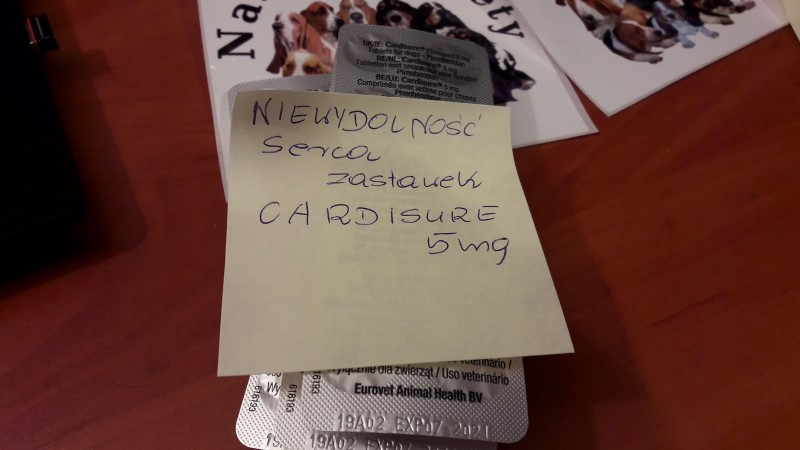 UK/IE: Cardisure
Tablets for dogs - Pimobendan
BE/NL: Cardisure® 5 mg
Tabletten met smaakstof voor honden
Pimobendan
BE/LU: Cardisure® 5 mg
Comprimés avec arôme pour chiens
Pimobendan
NIEWYDOLNOŚĆ
serca
zastawek
CARDISURE
5mg
Wyłącznie dla zwierząt / Uso veterinário
Eurovet Animal Health BV
616193
616193
19A02 EXP07 2021
19A02 EXP07